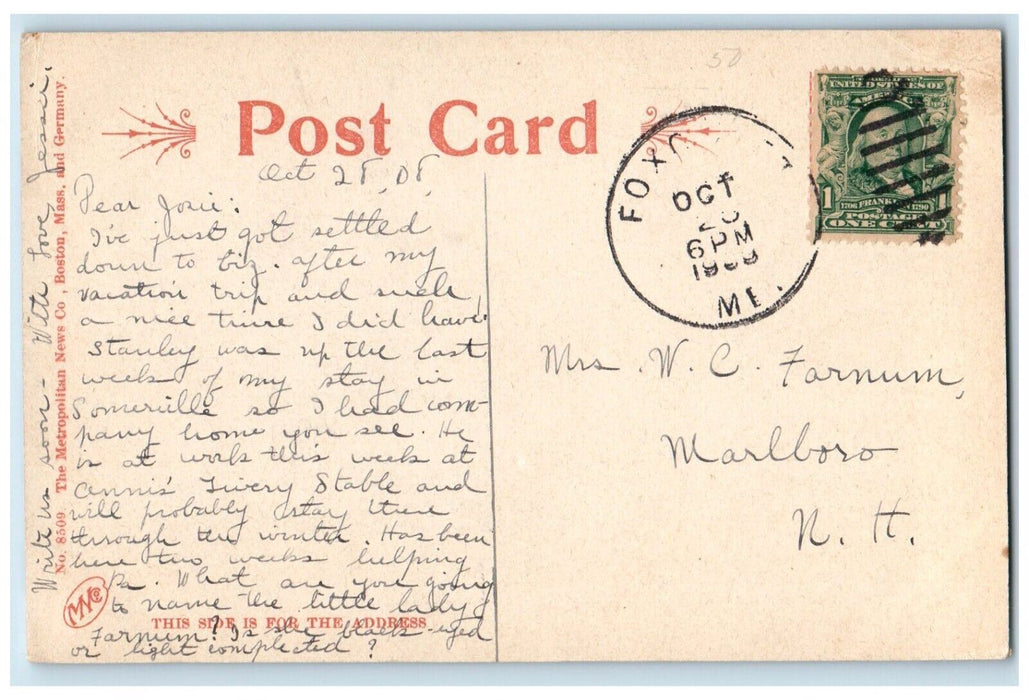 50
Post Card
UNITED STATES OF
AMERICA
1 1706 FRANKLIN 1790 1
POSTAGE
ONE CENT
FOX
OCT
6 PM
ME.
Oct 28, 08,
Dear Josie:
I've just got settled
down to biz. after my
vacation trip and such
a nice time I did have.
Stanley was up the last
week of my stay in
Somerville so I had com-
pany home you see. He
is at work this week at
Annis' Livery Stable and
will probably stay there
through the winter. Has been
here two weeks helping
Pa. What are you going
to name the little lady
Farnum? Is she black-eyed
or light complected?
Write us soon - With Love, Jessie.
Mrs. W. C. Farnum,
Marlboro
N. H.
No. 8509 The Metropolitan News Co., Boston, Mass. and Germany.
MNCo
THIS SIDE IS FOR THE ADDRESS